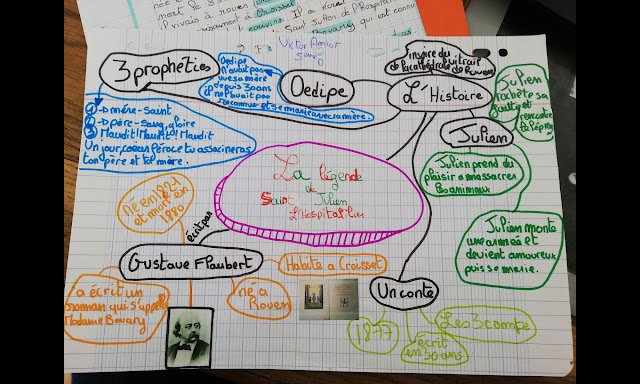 Victor Amiot
5ème D
3 prophéties
Oedipe
n'avait pas
vu sa mère
depuis 30 ans
il ne l'avait pas
reconnue et se marie avec sa mère.
Oedipe
inspiré du vitrail
de la cathédrale de Rouen
L'Histoire
Julien
rachète sa
faute et
rencontre
le lépreux
Julien
Julien prend du
plaisir a massacrer
les animaux
Julien monte
une armée et
devient amoureux
puis se marie.
① → mère - Saint
② → père - Sang, gloire
③ Maudit! Maudit! Maudit
Un jour, coeur féroce tu assassineras
ton père et ta mère.
La légende
de
Saint Julien
L'Hospitalier
écrit par
Né en 1821
et mort en
1880
Gustave Flaubert
Habite a Croisset
né a
Rouen
a écrit un
roman qui s'appelle
Madame Bovary
Un conte
1877
écrit
en 30 ans
Les 3 contes